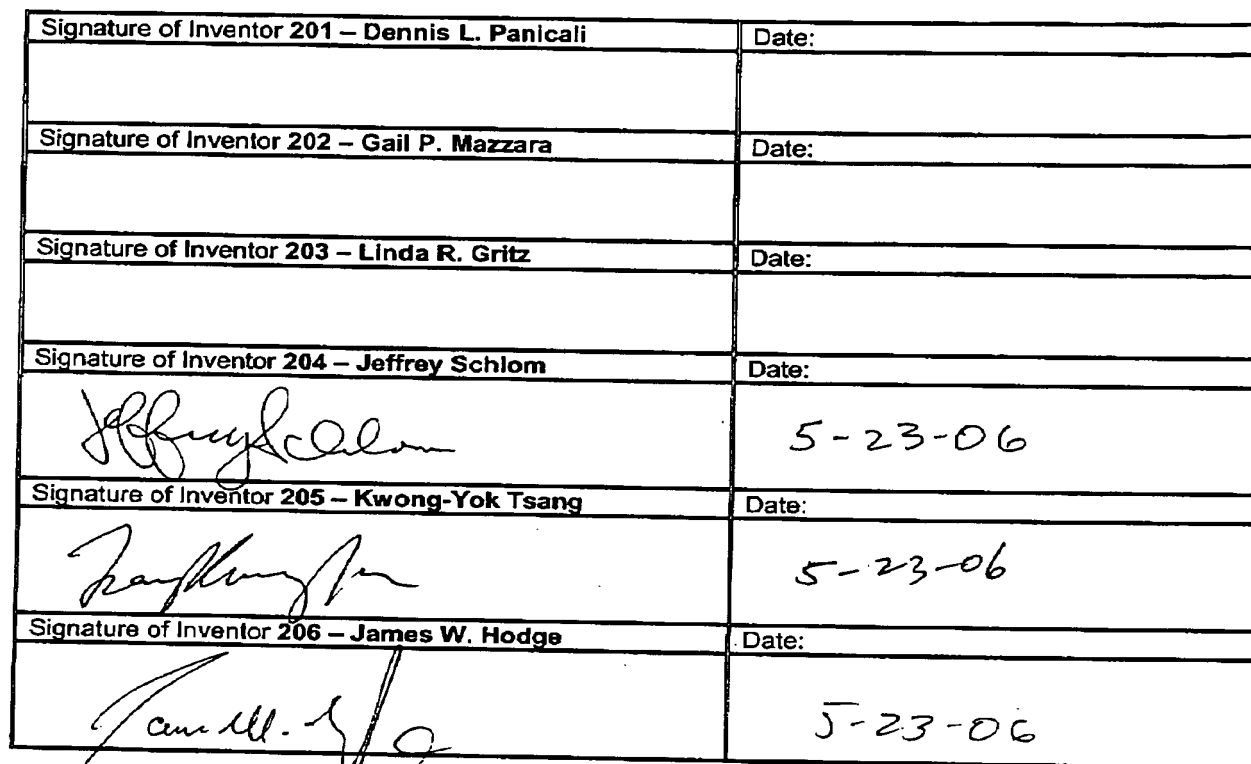 Signature of Inventor 201 – Dennis L. Panicali Date:
Signature of Inventor 202 – Gail P. Mazzara Date:
Signature of Inventor 203 – Linda R. Gritz Date:
Signature of Inventor 204 – Jeffrey Schlom Date:
Jeffrey Schlom 5-23-06
Signature of Inventor 205 – Kwong-Yok Tsang Date:
5-23-06
Signature of Inventor 206 – James W. Hodge Date:
James W. 5-23-06